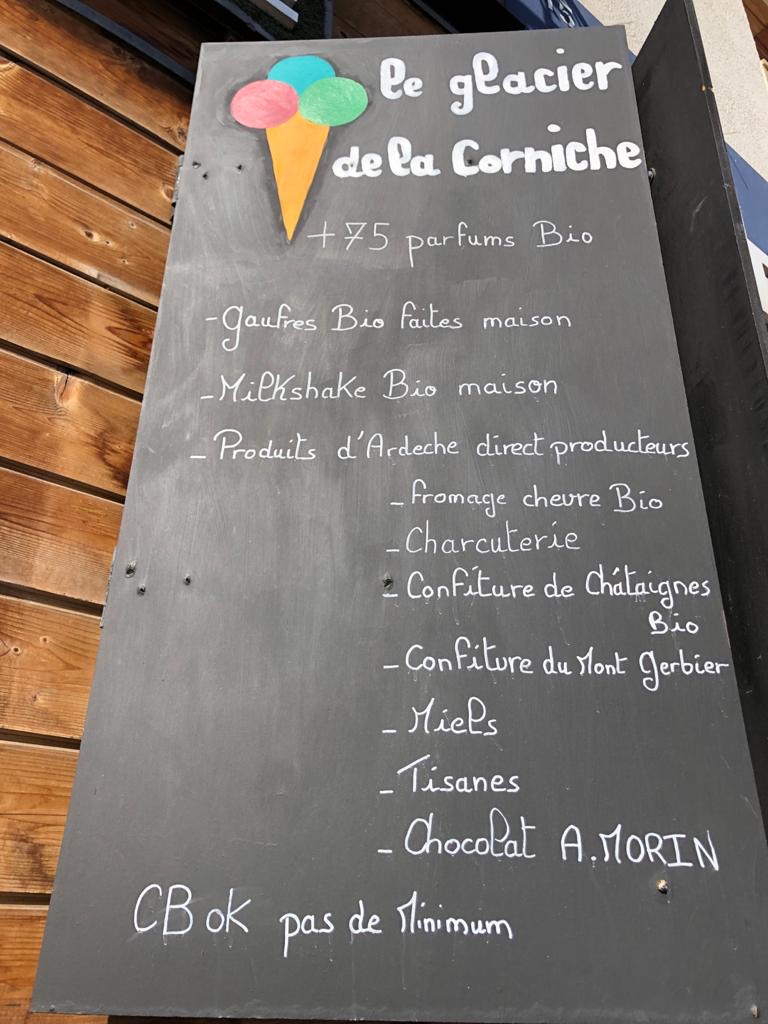 le glacier
de la Corniche
+75 parfums Bio
- gaufres Bio faites maison
- Milkshake Bio maison
- Produits d'Ardeche direct producteurs
- fromage chevre Bio
- Charcuterie
- Confiture de Châtaignes
Bio
- Confiture du Mont Gerbier
- Miels
- Tisanes
- Chocolat A.MORIN
CB ok pas de Minimum